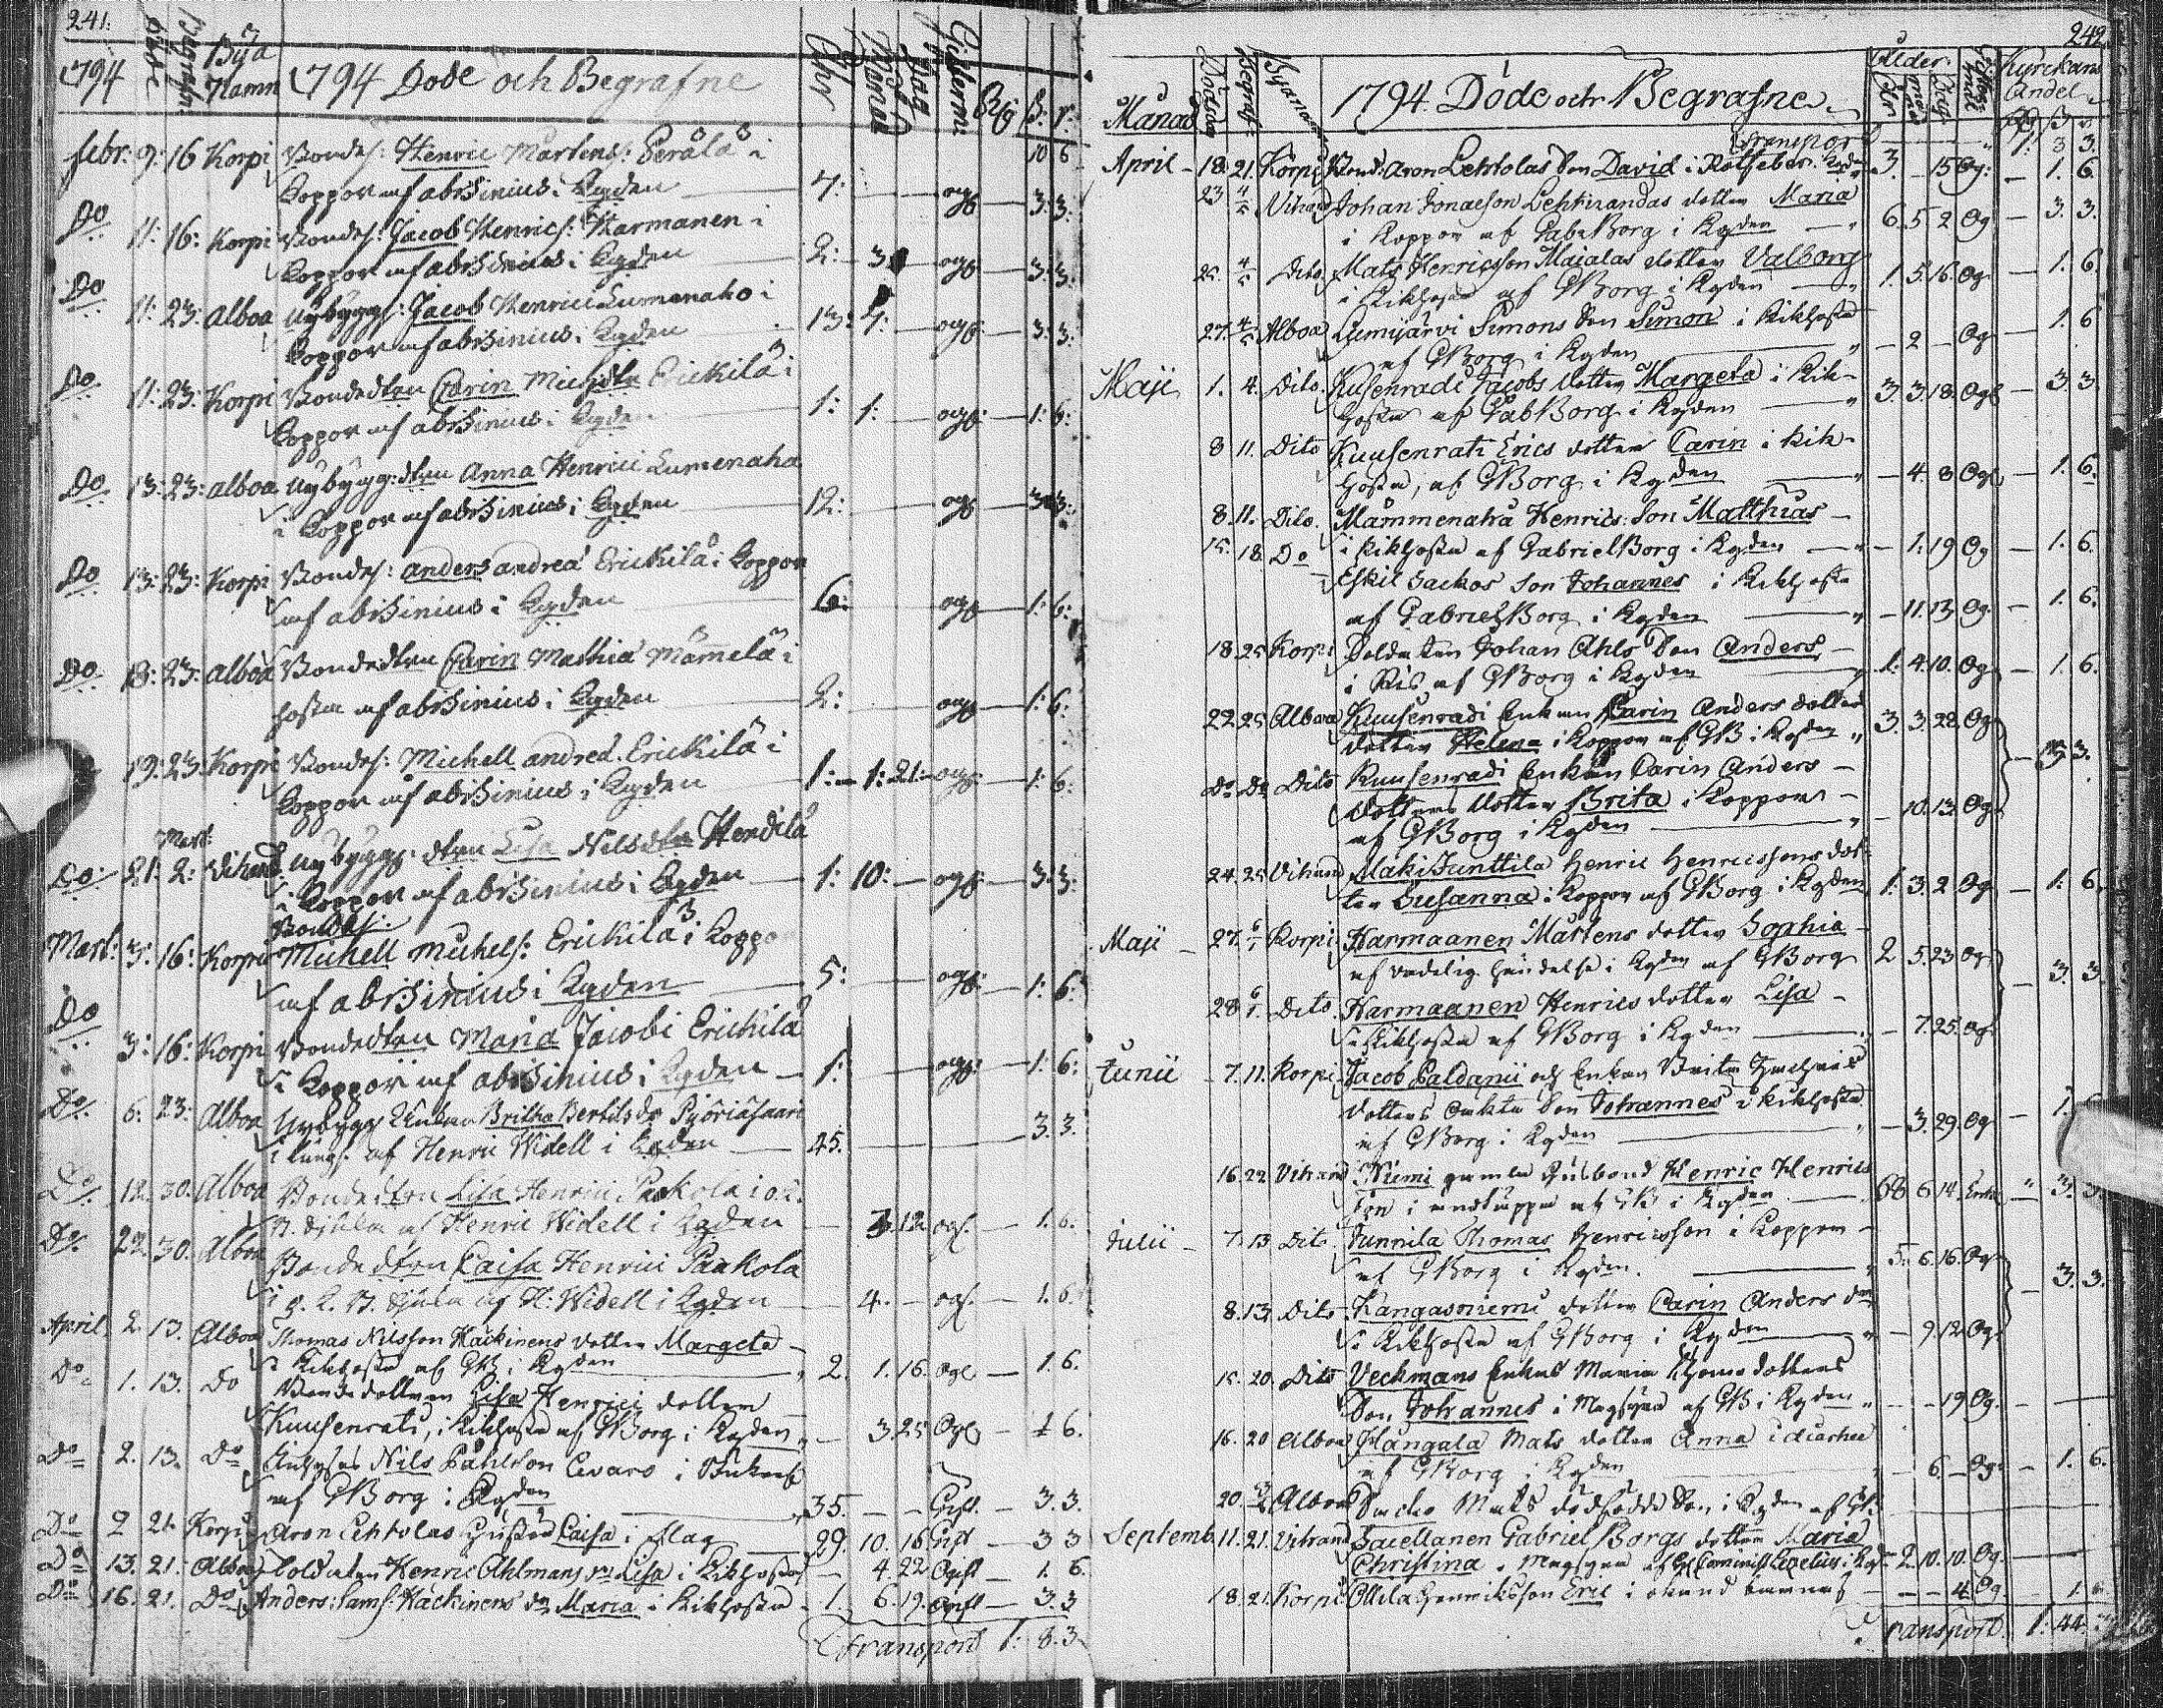 241.
1794 Döde Begrafn: Byа Namn 1794 Döde och Begrafne Åhr Månad Dag
Febr: 9: 16 Korpi Bondes: Henric Mårtens: Perälä i
Koppor af abrsinius i Kyden 7: ogft 3: 3:
Do 11: 16: Korpi Bondes: Jacob Henrics: Harmanen i
Koppor af abrsinius i Kyden 2: 3 ogft 3: 3:
Do 11: 23: Alboa Nybyggs: Jacob Henrici Lumenaho i
Koppor af abrsinius i Kyden 13: ogft 3: 3:
Do 11: 23: Korpi Bondedten Carin Michdtr Erickilä i
Koppor af abrsinius i Kyden 1: 1: ogft 1: 6:
Do 13: 23: alboa Nybygg:dten Anna Henrici Lumenaho
i Koppor af abrsinius i Kyden 12: ogft 3: 3:
Do 13: 23: Korpi Bondes: anders andreä Erickilä i Koppor
af abrsinius i Kyden 6: ogft 1: 6:
Do 18: 23: alboa Bondedten Carin Mathiä Mämmelä i
hosta af abrsinius i Kyden 2: ogft 1: 6:
19: 23: Korpi Bondes: Michell andreä Erickilä i
Koppor af abrsinius i Kyden 1: 1: 21: ogft 1: 6:
Mart:
Do 21: 2: Vihand Nybyggs: dten Lisa Nilsdtr Hendilä
i Koppor af abrsinius i Kyden 1: 10: ogft 3: 3:
Bondes:
Mart: 3: 16: Korpi Michell Michels: Erickilä i Koppor
af abrsinius i Kyden 5: ogft 1: 6:
Do 3: 16: Korpi Bondedten Maria Jacobi Erickilä
i Koppor af abrsinius i Kyden 1: ogft 1: 6:
Do 6: 23: Alboa Nybygg Enkan Britha Bertilsdr Pyöriäsaari
i lungs: af Henric Widell i Kyden 45. 3. 3.
Do 12. 30. Alboa Bondedten Lisa Henrici Paakola i
af Henric Widell i Kyden 12 ogf. 1. 6.
Do 22. 30. Alboa Bondedten Caisa Henrici Paakola
i af H: Widell i Kyden 4. ogf. 1. 6.
April 2. 13. Alboa Thomas Nilsson Häckinens dotter Margeta
i Kikhosta af GB i Kyden 2. 1. 16. ogf 1. 6.
Do 1. 13. Do Bonde dottren Lisa Henrici dotter
Kuusenrati, i Kikhosta af GBorg i Kyden 3. 25 Ogf 1 6.
Do 2. 13. Do Inhyses Nils Påhlsson
af GBorg i Kyden 35. Gift. 3. 3.
Do 2 21. Korpi Aron Lehtolas Hustru Caisa i slag 29. 10. 16 Gift 3 3
Do 13. 21. Alboa Soldaten Henric Ahlmans Lisa i Kikhosta 4. 22 Ogift 1. 6.
Do 16. 21. Do Anders: Sams: Häckinens dr Maria i Kikhosta 1. 6. 19. Ogift 3. 3
Transport 1: 8. 3.
242.
Månad Dödsda Begraf: Byanamn 1794. Döde och Begrafne Ålder Åhr Månad Dag Kyrckans Andel
Transport 1: 3 3.
April 18. 21. Korpi Bond: Aron Lehtolas Son David i Rötfeber 3. 15 Og: 1. 6.
23 4/5 Vihand Johan Jonaeson Lehtirandas dotter Maria
i Koppor af Gab: Borg i Kyden 6. 5 2 Og 3. 3.
25. 4/5 Dito Mats Henricsson Maialas dotter Valborg
i Kikhosta af GBorg i Kyden 1. 5. 16. Og 1. 6.
27. 4/5 Alboa Lumijärvi Simons Son Simon i Kikhosta
af GBorg i Kyden 2 Og 1. 6
Maji 1. 4. Dito. Kusenradi Jacobs dotter Margeta i Kik-
hosta af Gab Borg i Kyden 3. 3. 18. Ogf 3 3
8 11. Dito Kuusenrati Erics dotter Carin i Kik-
hosta, af GBorg i Kyden 4. 8 Ogf 1. 6.
8. 11. Dito. Mämmenaha Henrics: Son Matthias
i Kikhosta af Gabriel Borg i Kyden 1. 19 Og 1. 6.
15. 18. Do Eskil Jackos Son Johannes i Kikhosta
af Gabriel Borg i Kyden 11. 13. Og. 1. 6.
18. 25 Korpi Soldaten Johan Ahls Son Anders
i Ris af GBorg i Kyden 1. 4. 10. Og 1. 6.
22. 25 Alboa Kuusenradi Enkan Carin Anders dotter
dotter Helena i Koppor af GB i Kyden 3. 3. 22. Og
Do Do Dito Kuusenradi Enkan Carin Anders
dotters dotter Brita i Koppor 3.
af GBorg i Kyden 10. 13. Og
24. 25 Vihand Mäki Junttila Henric Henricssons dot-
ter Susanna i Koppor af GBorg i Kyden 1. 3. 2 Og 1. 6.
Maji 27. Korpi Harmaanen Mårtens dotter Sophia
af vådelig händelse i Kyden af GBorg 2 5. 23 Og
28. Dito. Harmaanen Henrics dotter Lisa 3. 3.
i Kikhosta af GBorg i Kyden 7. 25. og
Junii 7. 11. Korpi Jacob Paldanii och Enkan Brita
dotters Son Johannes i Kikhosta
af GBorg i Kyden 3. 29. Og 1.
16. 22. Vihand Niemi gamla Husbond Henric Henrics
Son i af GB i Kyden 68 6 14. Enkl. 3. 3.
Julii 7. 13 Dito Junnila Thomas Henricsson i Koppor
af GBorg i Kyden. 5. 6. 16. Og
8. 13. Dito Kangasniemi dotter Carin Anders dtr 3. 3.
i Kikhosta af GBorg i Kyden 9. 12. Og
15. 20. Dito Veckmans Enkas Maria dotters
Son Johannes i Magsjuka af GB i Kyden 19 Og.
16. 20 Alboa Hangala Mats dotter Anna i
af GBorg i Kyden 6. Og. 1. 6.
20. Alboa Mats dödfödda Son, i Kyden af GB:
Septemb. 11. 21. Vihand Gabriel Borgs dotter Maria
Christina i Magsjuka af 2. 10. 10. Og.
18. 21. Korpi Ollila Henriksson Eric i okänd barnas 4. Og. 1
Transport. 1: 44.